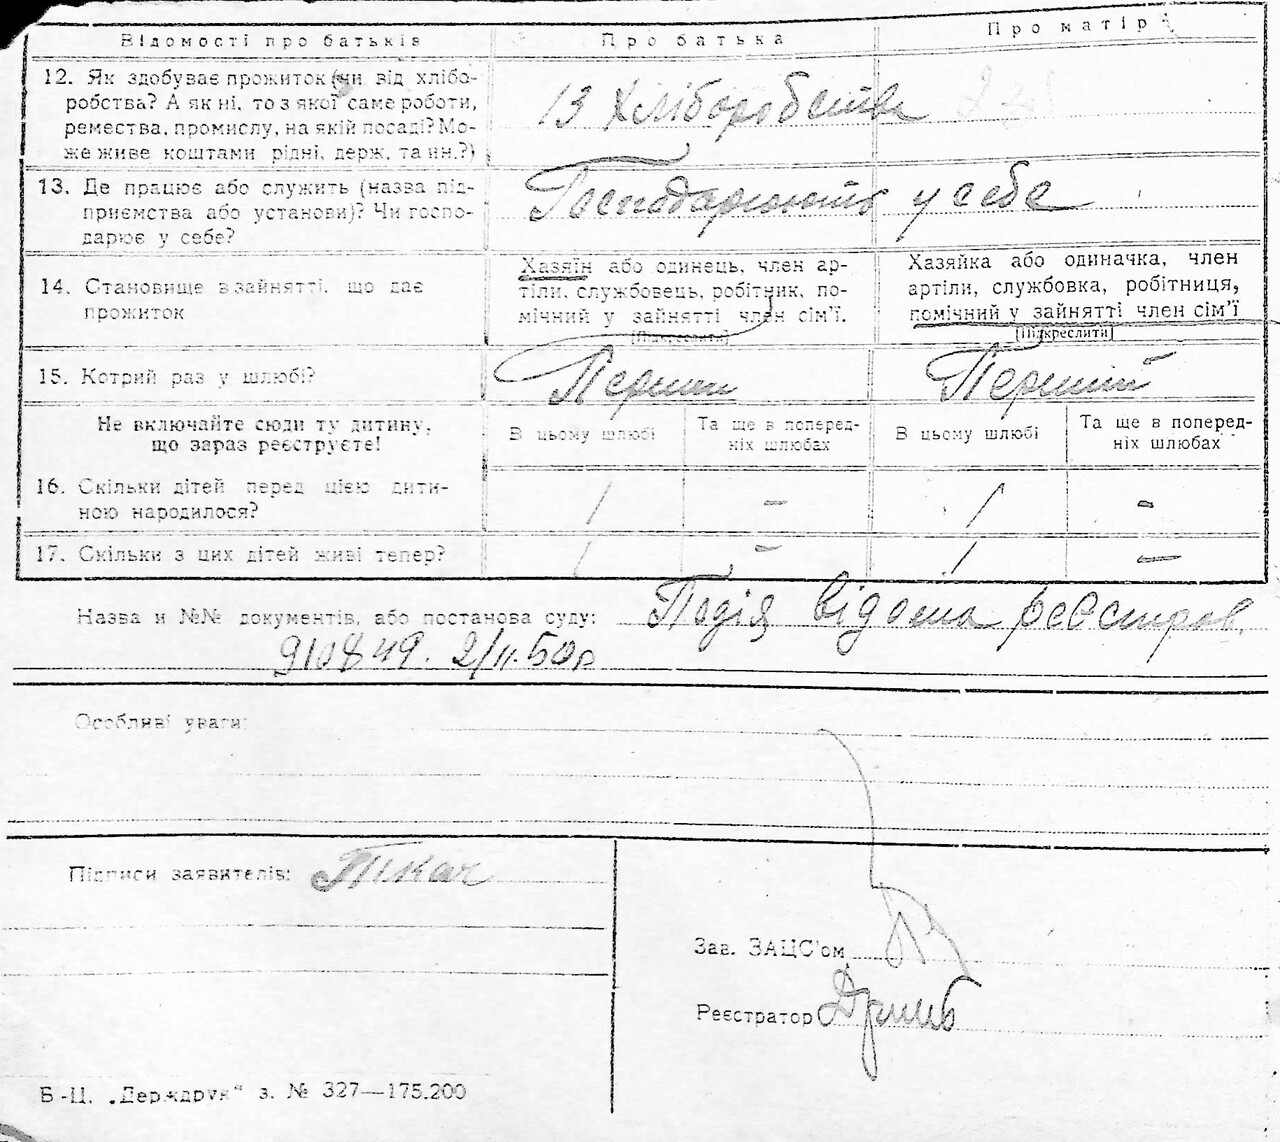 Відомості про батьків Про батька Про матір
12. Як здобуває прожиток (чи від хлібо-
робства? А як ні, то з якої саме роботи,
ремества, промислу, на якій посаді? Мо-
же живе коштами рідні, держ. та ин.?)
Із хліборобства
13. Де працює або служить (назва під-
приємства або установи)? Чи госпо-
дарює у себе?
Господарюють у себе
14. Становище в зайнятті, що дає
прожиток
Хазяїн або одинець, член ар-
тіли, службовець, робітник, по-
мічний у зайнятті член сім'ї.
(Підкреслити)
Хазяйка або одиначка, член
артіли, службовка, робітниця,
помічний у зайнятті член сім'ї
(Підкреслити)
15. Котрий раз у шлюбі?
Перший
Перший
Не включайте сюди ту дитину,
що зараз реєструєте!
В цьому шлюбі
Та ще в поперед-
ніх шлюбах
В цьому шлюбі
Та ще в поперед-
ніх шлюбах
16. Скільки дітей перед цією дити-
ною народилося?
1 – 1 –
17. Скільки з цих дітей живі тепер?
1 – 1 –
Назва и №№ документів, або постанова суду: Подія відома реєстров.
910849. 2/II.50р
Особливі уваги:
Підписи заявителів: Ткач
Зав. ЗАЦС'ом
Реєстратор
Б-Ц. „Держдрук“ з. № 327—175.200